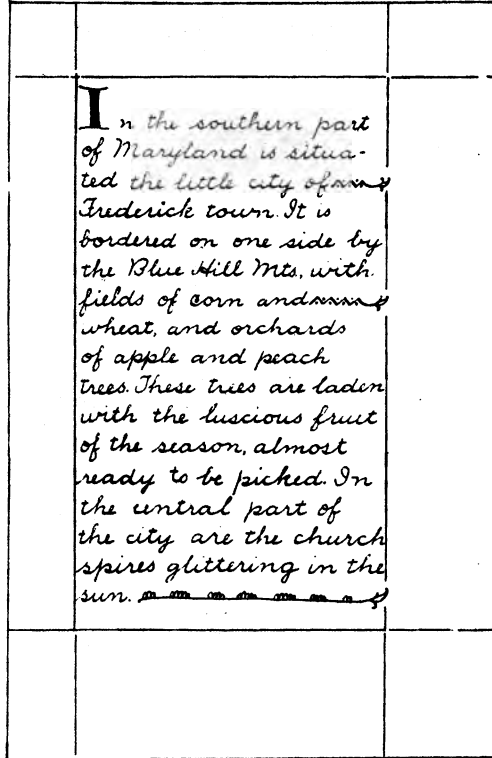 In the southern part
of Maryland is situa-
ted the little city of
Frederick town. It is
bordered on one side by
the Blue Hill Mts, with
fields of corn and
wheat, and orchards
of apple and peach
trees. These trees are laden
with the luscious fruit
of the season, almost
ready to be picked. In
the central part of
the city are the church
spires glittering in the
sun.